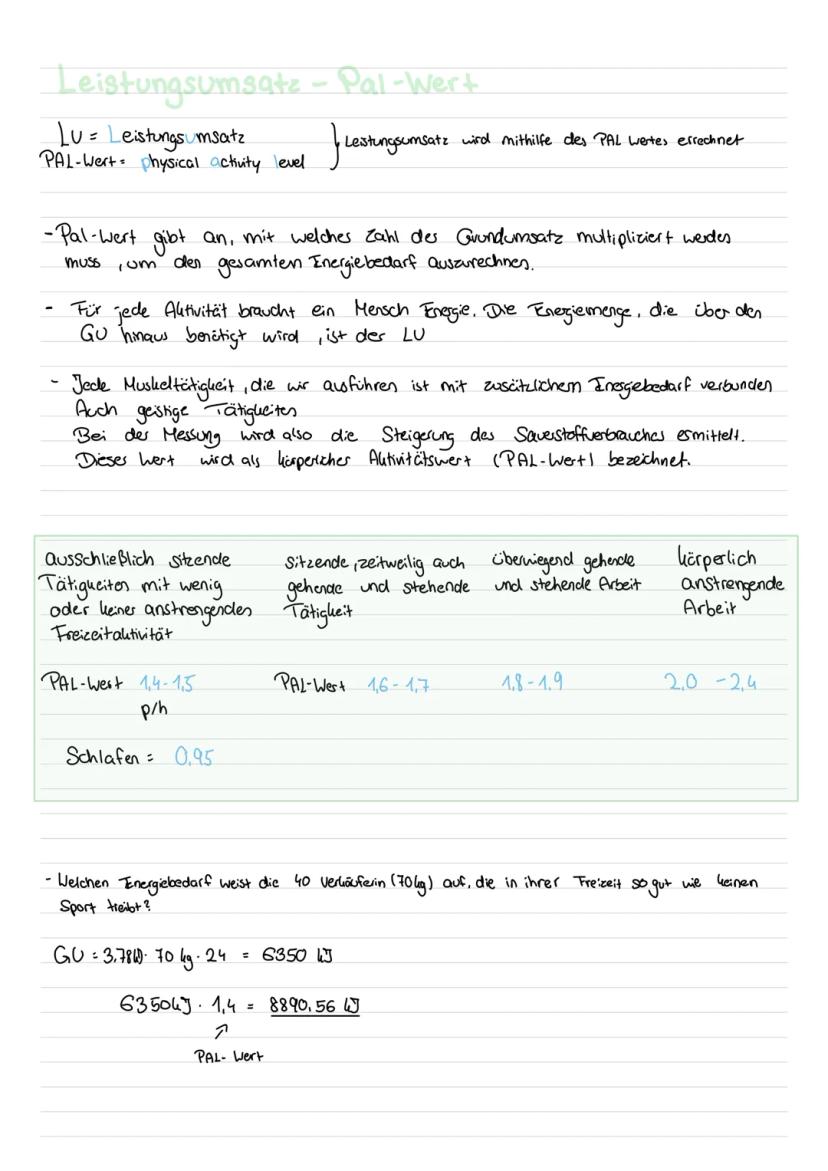 Leistungsumsatz - Pal-Wert
LU = Leistungsumsatz
PAL-Wert = physical activity level
} Leistungsumsatz wird mithilfe des PAL Wertes errechnet
- Pal-Wert gibt an, mit welcher Zahl der Grundumsatz multipliziert werden
muss, um den gesamten Energiebedarf auszurechnen.
- Für jede Aktivität braucht ein Mensch Energie. Die Energiemenge, die über den
GU hinaus benötigt wird, ist der LU
- Jede Muskeltätigkeit, die wir ausführen ist mit zusätzlichem Energebedarf verbunden
Auch geistige Tätigkeiten
Bei der Messung wird also die Steigerung des Sauerstoffverbrauches ermittelt.
Dieser Wert wird als körperlicher Aktivitätswert (PAL-Wert) bezeichnet.
ausschließlich sitzende
Tätigkeiten mit wenig
oder keiner anstrengenden
Freizeitaktivität
sitzende, zeitweilig auch
gehende und stehende
Tätigkeit
überwiegend gehende
und stehende Arbeit
körperlich
anstrengende
Arbeit
PAL-Wert 1,4-1,5
p/h
PAL-Wert 1,6-1,7
1,8-1,9
2,0 -2,4
Schlafen = 0,95
- Welchen Energiebedarf weist die 40 Verkäuferin (70kg) auf, die in ihrer Freizeit so gut wie keinen
Sport treibt?
GU = 3,78kJ · 70 kg · 24 = 6350 kJ
6350kJ · 1,4 = 8890,56 kJ
↗
PAL- Wert